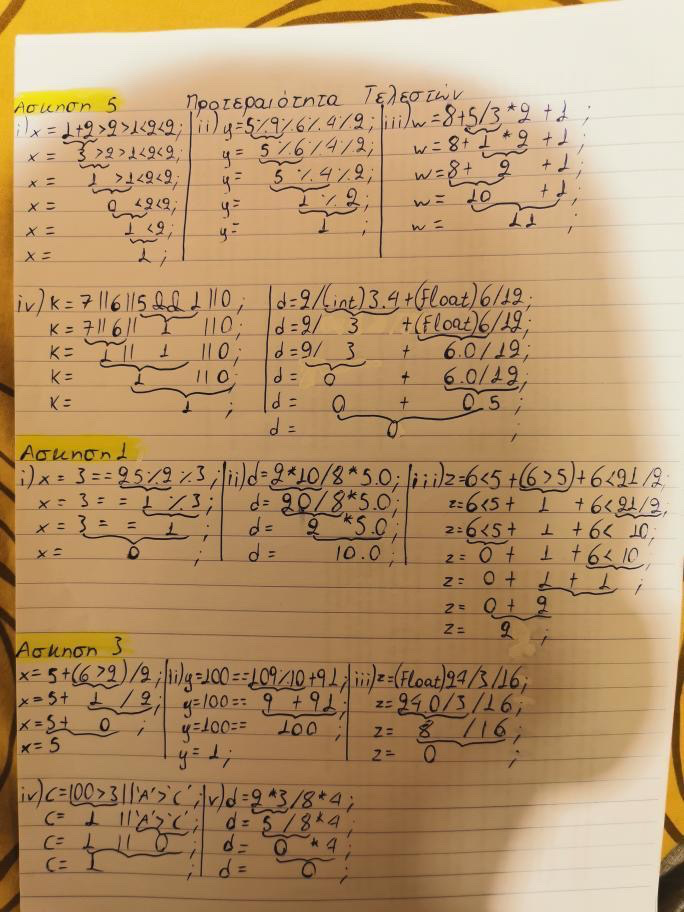 Προτεραιότητα Τελεστών
Άσκηση 5
i) x = 1+2>2>1<2<2;
x = 3>2>1<2<2;
x = 1 >1<2<2;
x = 0 <2<2;
x = 1 <2;
x = 1 ;
ii) y=5%9%6%4%2;
y= 5%6%4%2;
y= 5 %4%2;
y= 1 % 2;
y= 1 ;
iii) w=8+5/3*2 +1 ;
w=8+ 1 *2 +1 ;
w=8+ 2 +1 ;
w= 10 +1 ;
w= 11 ;
iv) K=7||6||5&&1||0;
K=7||6|| 1 ||0;
K= 1 || 1 ||0;
K= 1 ||0;
K= 1 ;
d=2/(int)3.4+(float)6/12;
d=2/ 3 +(float)6/12;
d=2/ 3 + 6.0/12;
d= 0 + 6.0/12;
d= 0 + 0.5 ;
d= 0 ;
Άσκηση 1
i) x = 3==25%2%3;
x = 3 = = 1 % 3;
x = 3 = = 1 ;
x = 0 ;
ii) d=2*10/8*5.0;
d=20/8*5.0;
d= 2 *5.0;
d= 10.0 ;
iii) z=6<5+(6>5)+6<21/2;
z=6<5+ 1 +6<21/2;
z=6<5+ 1 +6< 10;
z= 0 + 1 +6<10;
z= 0 + 1 + 1 ;
z= 0 + 2
z= 2 ;
Άσκηση 3
x=5+(6>2)/2;
x=5+ 1 /2;
x=5+ 0 ;
x=5
ii) y=100==109%10+91;
y=100== 9 +91;
y=100== 100 ;
y= 1;
iii) z=(float)24/3/16;
z=24.0/3/16;
z= 8 /16;
z= 0 ;
iv) C=100>3||'A'>'C';
C= 1 ||'A'>'C';
C= 1 || 0 ;
C= 1 ;
v) d=2*3/8*4;
d= 5 /8*4;
d= 0 *4;
d= 0 ;